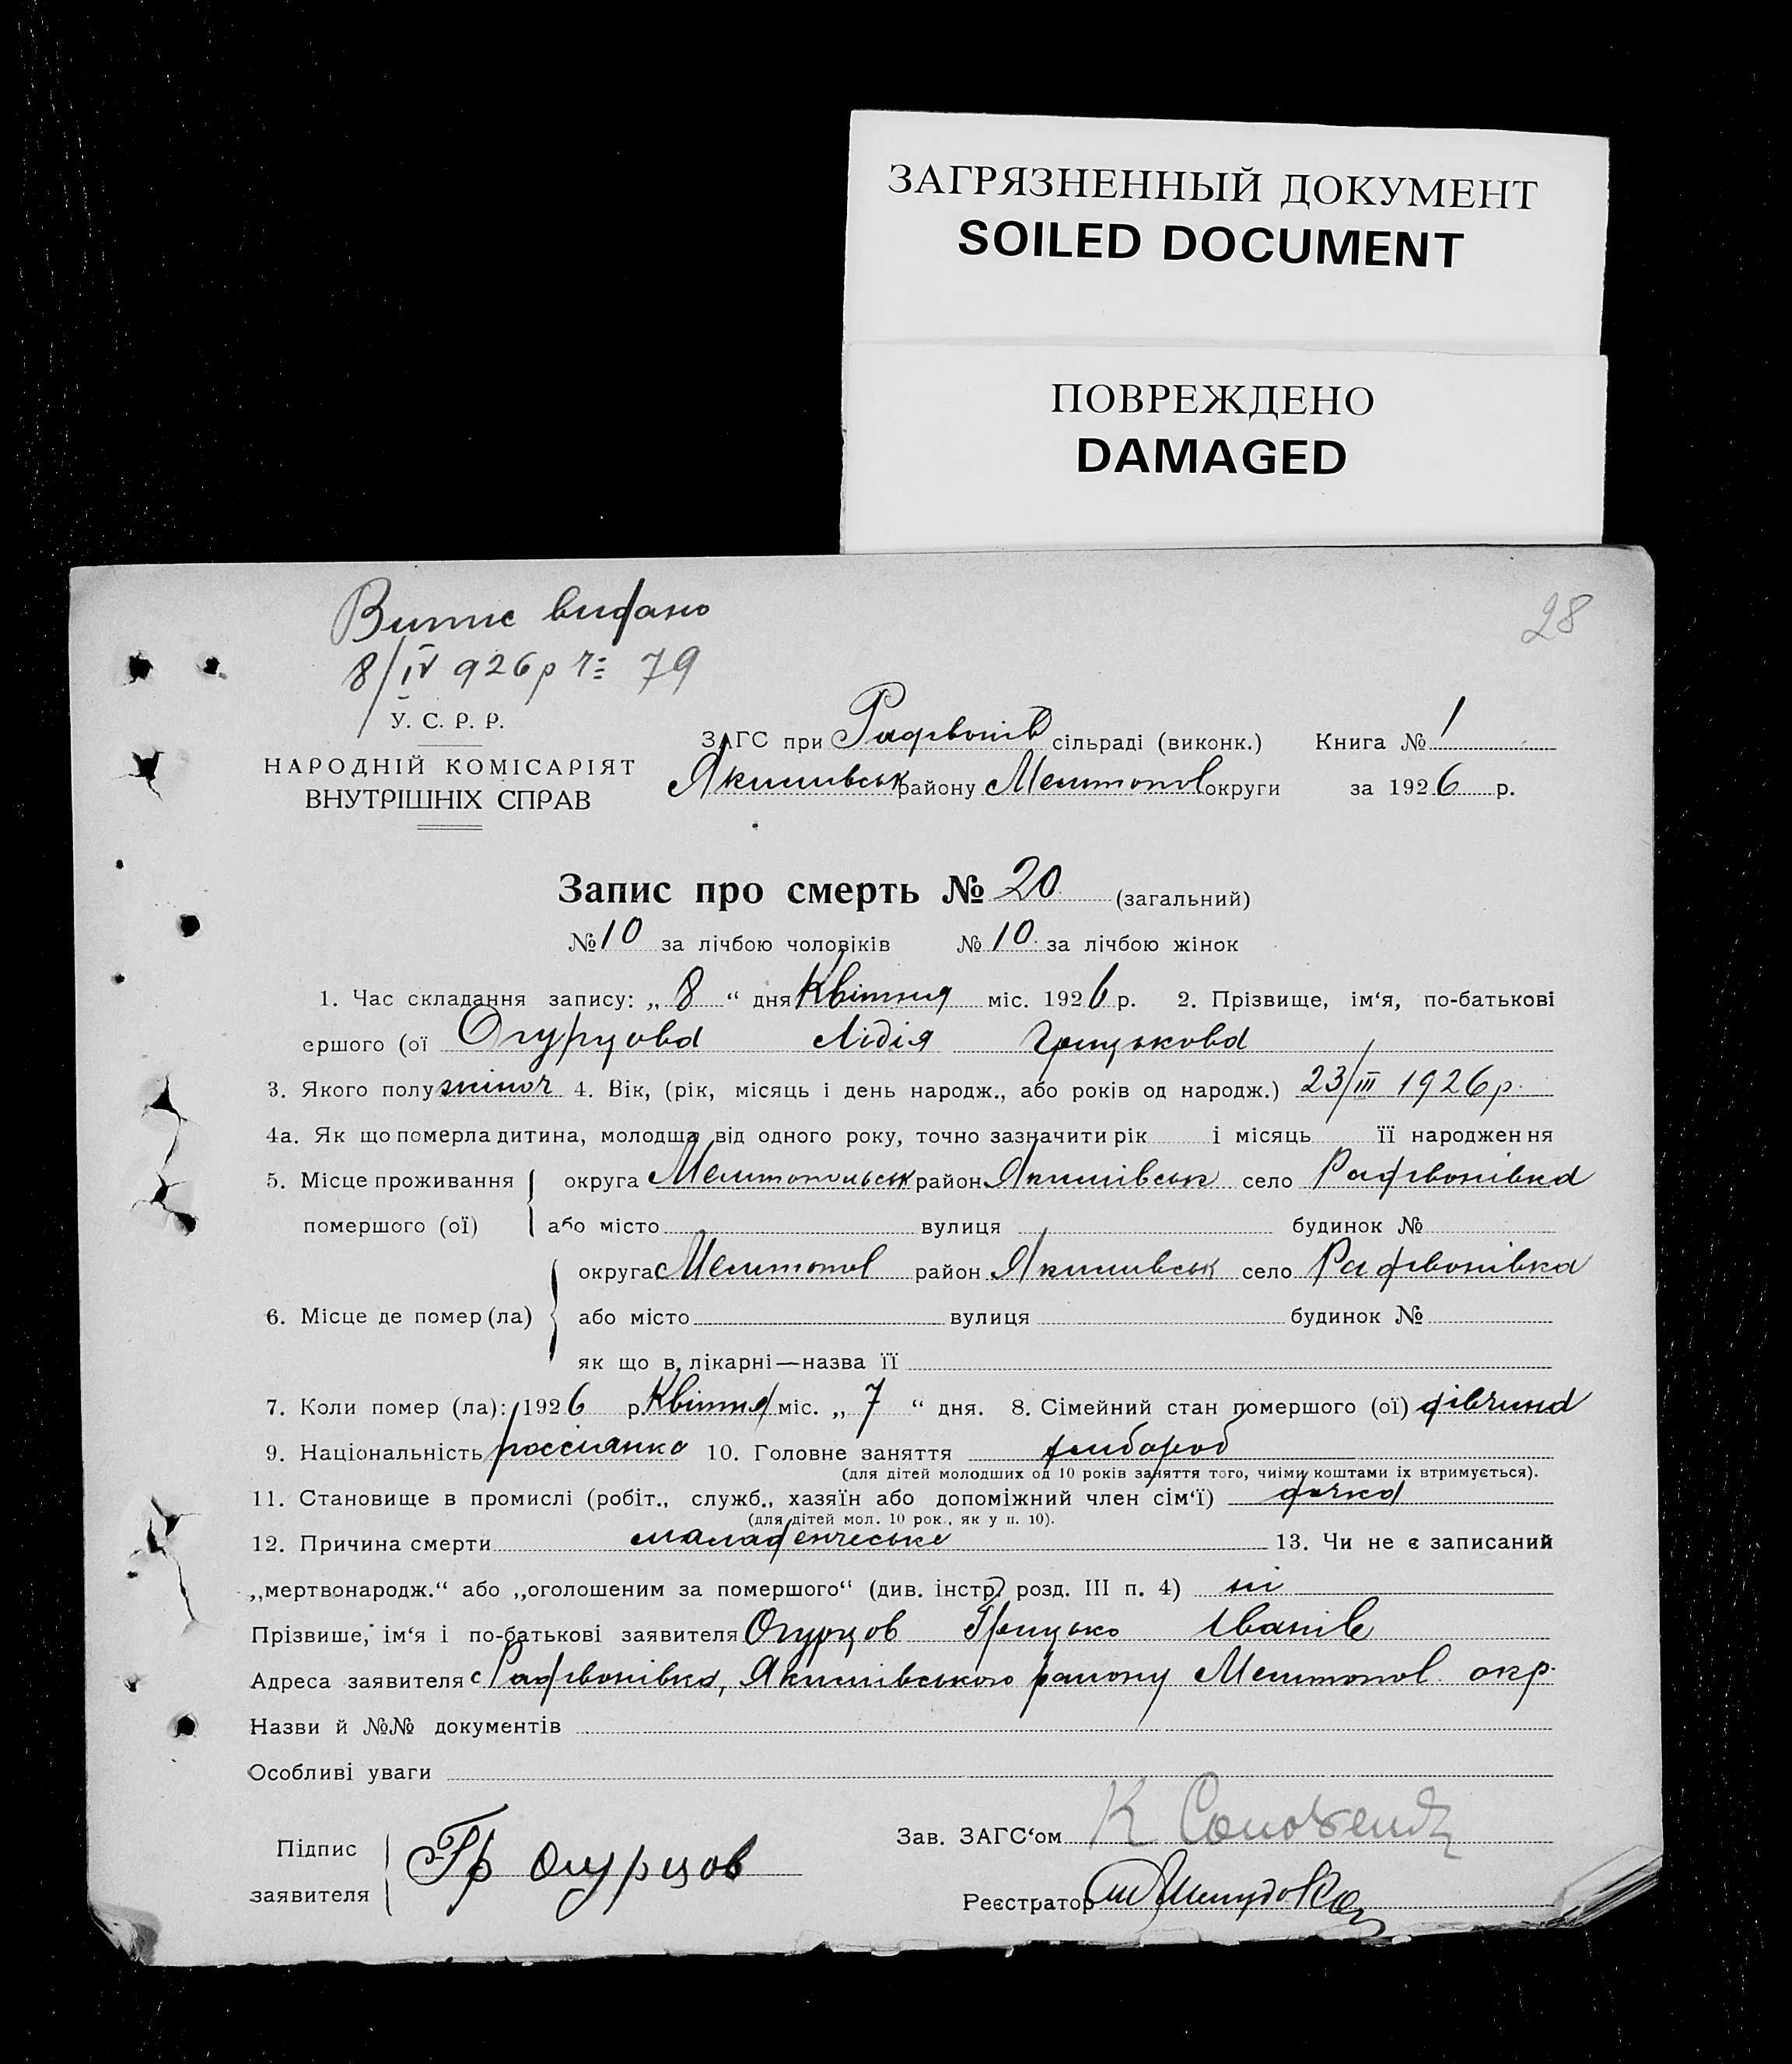 ЗАГРЯЗНЕННЫЙ ДОКУМЕНТ
SOILED DOCUMENT
ПОВРЕЖДЕНО
DAMAGED
28
Випис видано
8/IV 926 р № 79
У. С. Р. Р.
НАРОДНІЙ КОМІСАРІЯТ
ВНУТРІШНІХ СПРАВ
ЗАГС при Радівонів сільраді (виконк.) Книга № 1
Якимівськ району Мелітопол округи за 1926 р.
Запис про смерть № 20 (загальний)
№ 10 за лічбою чоловіків № 10 за лічбою жінок
1. Час складання запису: „ 8 “ дня Квітня міс. 1926 р. 2. Прізвище, ім‘я, по-батькові
ершого (ої Огурцова Лідія Грицькова
3. Якого полу жіноч 4. Вік, (рік, місяць і день народж., або років од народж.) 23/III 1926 р.
4а. Як що померла дитина, молодша від одного року, точно зазначити рік і місяць її народження
5. Місце проживання округа Мелітопольськ район Якимівськ село Радівонівка
помершого (ої) або місто вулиця будинок №
округа Мелітопол район Якимівськ село Радівонівка
6. Місце де помер (ла) або місто вулиця будинок №
як що в лікарні—назва її
7. Коли помер (ла): 1926 р. Квітня міс. „ 7 “ дня. 8. Сімейний стан помершого (ої) дівчина
9. Національність россіянка 10. Головне заняття хлібороб
(для дітей молодших од 10 років заняття того, чиїми коштами їх втримується).
11. Становище в промислі (робіт., служб., хазяїн або допоміжний член сім‘ї) дочка
(для дітей мол. 10 рок., як у п. 10).
12. Причина смерти маладенчеське 13. Чи не є записаний
„мертвонародж.“ або „оголошеним за помершого“ (див. інстр. розд. III п. 4) ні
Прізвище, ім‘я і по-батькові заявителя Огурцов Грицько Іванів
Адреса заявителя с Радівонівка, Якимівського району Мелітопол. окр.
Назви й №№ документів
Особливі уваги
Підпис заявителя Гр Огурцов
Зав. ЗАГС‘ом К
Реєстратор